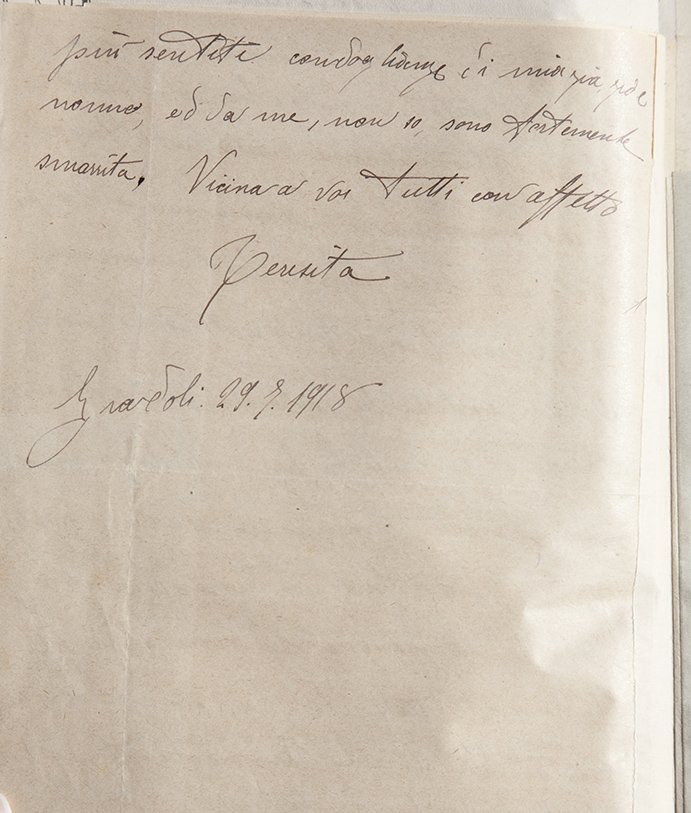 più sentite condoglianze di mia zia, zio e
nonna, ed da me, non so, sono fortemente
smarrita. Vicina a voi tutti con affetto
Teresita
Gradoli. 29. 9. 1918